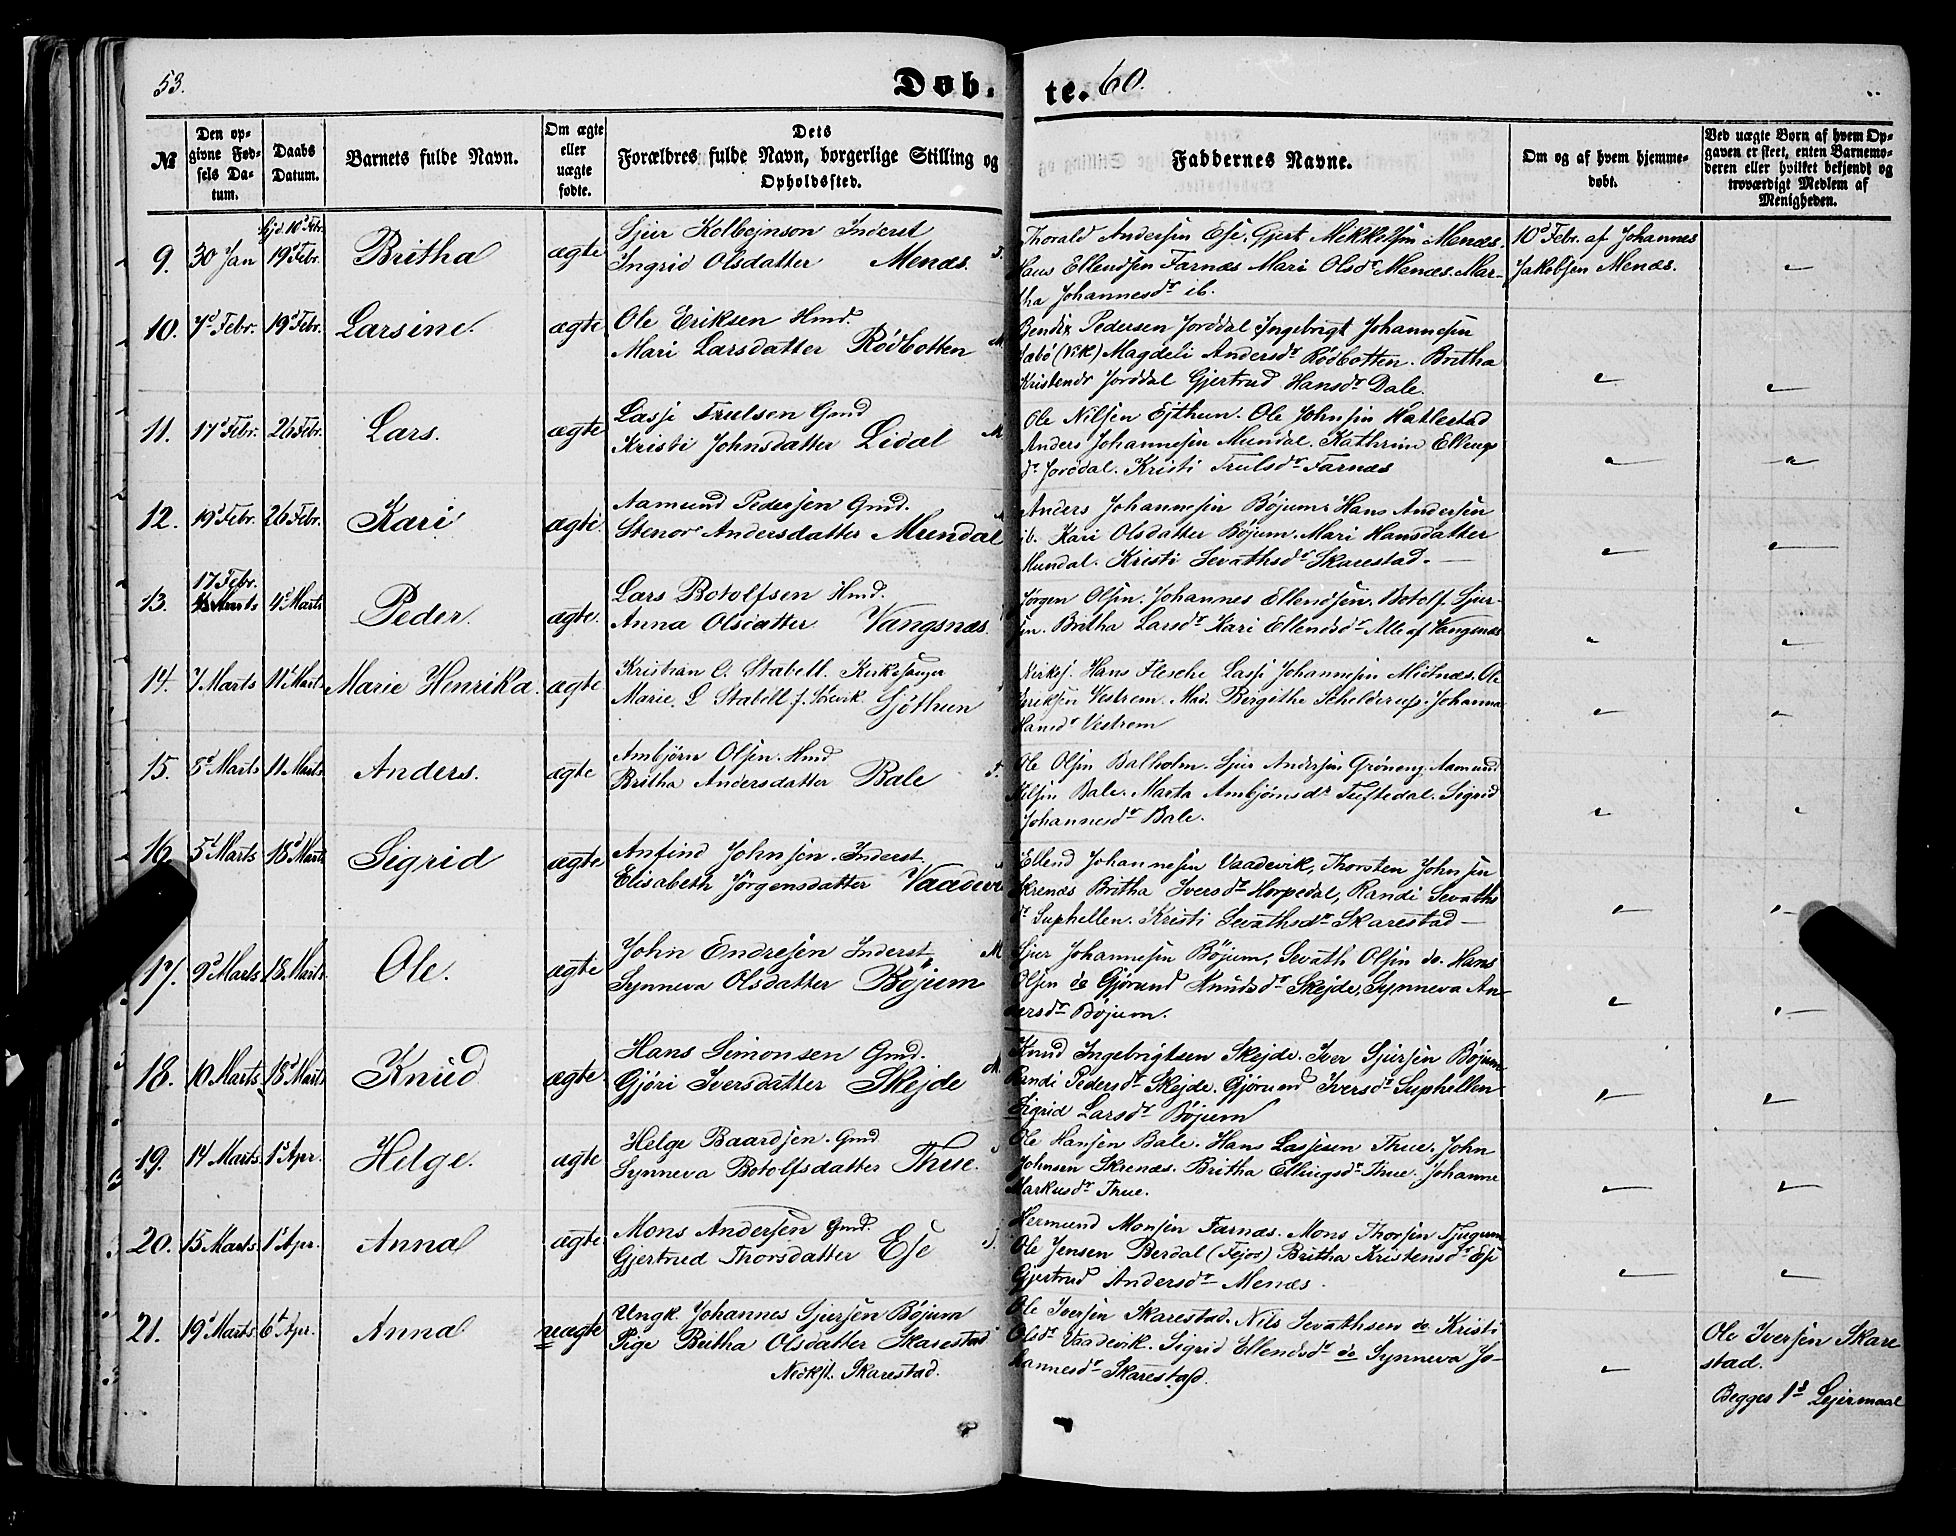 53.
Døb-
te. 60.
№
Den op-
givne Fød-
sels Da-
tum.
Daabs
Datum.
Barnets fulde Navn.
Om ægte
eller
uægte
fødte.
Dets
Forældres fulde Navn, borgerlige Stilling og
Opholdssted.
Faddernes Navne.
Om og af hvem hjemme-
døbt.
Ved uægte Børn af hvem Op-
gaven er skeet, enten Barnemo-
deren eller hvilket bekjendt og
troværdigt Medlem af
Menigheden.
9. 30 Jan
Hjd. 10d Febr.
19d Febr.
Britha
ægte
Sjur Kolbejnson Inderst
Ingrid Olsdatter Menæs.
Thorald Andersen Ese. Gjert Mikkelsen Menæs.
Hans Ellendsen Farnæs Mari Olsdr Menæs. Mar-
tha Johannesdr ib.
10d Febr. af Johannes
Jakobsen Menæs.
10. 7d Febr. 19d Febr. Larsine. ægte
Ole Eriksen Hmd.
Mari Larsdatter Rödbotten
Bendix Pedersen Jorddal Ingebrigt Johannesen
Sabö (Vik) Magdeli Andersdr Rödbotten. Britha
Kristendr Jorddal Gjertrud Hansdr Dale.
11. 17d Febr. 26 Febr. Lars. ægte
Lasse Trulsen Gmd
Kristi Johnsdatter Lidal M
Ole Nilsen Ejthun. Ole Johnsen Hatlestad
Anders Johannesen Mundal. Kathrine Ellings
dr Jorddal. Kristi Trulsdr Farnæs
12. 19d Febr. 26 Febr. Kari ægte.
Aamund Pedersen Gmd.
Stenor Andersdatter Mundal
Anders Johannesen Bøjum. Hans Andersen
ib. Kari Olsdatter Bøjum. Mari Hansdatter
Mundal. Kristi Sevathsdr Skarestad.
13. 17 Febr.
4d Marts Peder. ægte.
Lars Botolfsen Hmd.
Anna Olsdatter Vangsnæs.
Jørgen Olsen. Johannes Ellendsen. Botolf Sjur-
sen. Britha Larsdr Kari Ellendsdr Alle af Vangsnæs
14. 7 Marts 11t Marts Marie Henrika. ægte
Kristian C. Stabell. Kirkesanger
Marie L Stabell f. Sörvik Sjöthun
Kirkesj. Hans Flesche Lasse Johannesen Midnæs. Ole
Eriksen Vestrem. Mad. Bergithe Schelderup. Johanna
Hansdr Vestrem
15. 8d Marts 11 Marts Anders. ægte
Ambjörn Olsen. Hmd
Britha Andersdatter Bale
Ole Olsen Balholm. Sjur Andersen Gröneng. Aamund
Nilsen Bale. Marta Ambjörnsdr Tuftedal. Sigrid
Johannesdr Bale.
16. 5t Marts 18d Marts Sigrid ægte
Anfind Johnsen. Inderst
Elisabeth Jörgensdatter Vaadevi
Ellend Johannesen Vaadevik, Thorsten Johnsen
Skrenæs Britha Iversdr Horpedal, Randi Sevaths
dr Suphellen. Kristi Sevathsdr Skarestad
17. 9d Marts 18. Marts Ole. ægte
John Endresen Inderst M
Synneva Olsdatter Bøjum
Sjur Johannesen Bøjum, Sevath Olsen do. Hans
Olsen do Gjörund Knudsdr Skejde, Synneva An-
dersdr Bøjum.
18. 10 Marts 18d Marts Knud ægte
Hans Simonsen Gmd.
Gjöri Iversdatter Skejde M.
Knud Ingebrigtsen Skejde. Iver Sjursen Bøjum
Randi Pedersdr Skejde. Gjörund Iversdr Suphellen
Sigrid Larsdr Bøjum
19. 14 Marts. 1s Apr. Helge. ægte
Helge Baardsen. Gmd
Synneva Botolfsdatter Thue.
Ole Hansen Bale. Hans Lassesen Thue. John
Johnsen Skrenæs. Britha Ellingsdr Thue. Johanne
Markusdr Thue.
20. 15 Marts 1s Apr. Anna ægte
Mons Andersen Gmd.
Gjertrud Thorsdatter Ese
Hermund Monsen Farnæs. Mons Thorsen Tjugum
Ole Jensen Berdal (Fejos) Britha Kristensdr Ese
Gjertrud Andersdr Menæs.
21. 19d Marts 6t Apr. Anna uægte
Ungk. Johannes Sjursen Bøjum
Pige Britha Olsdatter Skarestad
Nedkst. Skarestad.
Ole Iversen Skarestad. Nils Sevathsen do Kristi
Olsdr Vaadevik. Sigrid Ellendsdr do Synneva Jo-
hannesdr Skarestad.
Ole Iversen Skare
stad.
Begges 1s Lejermaal